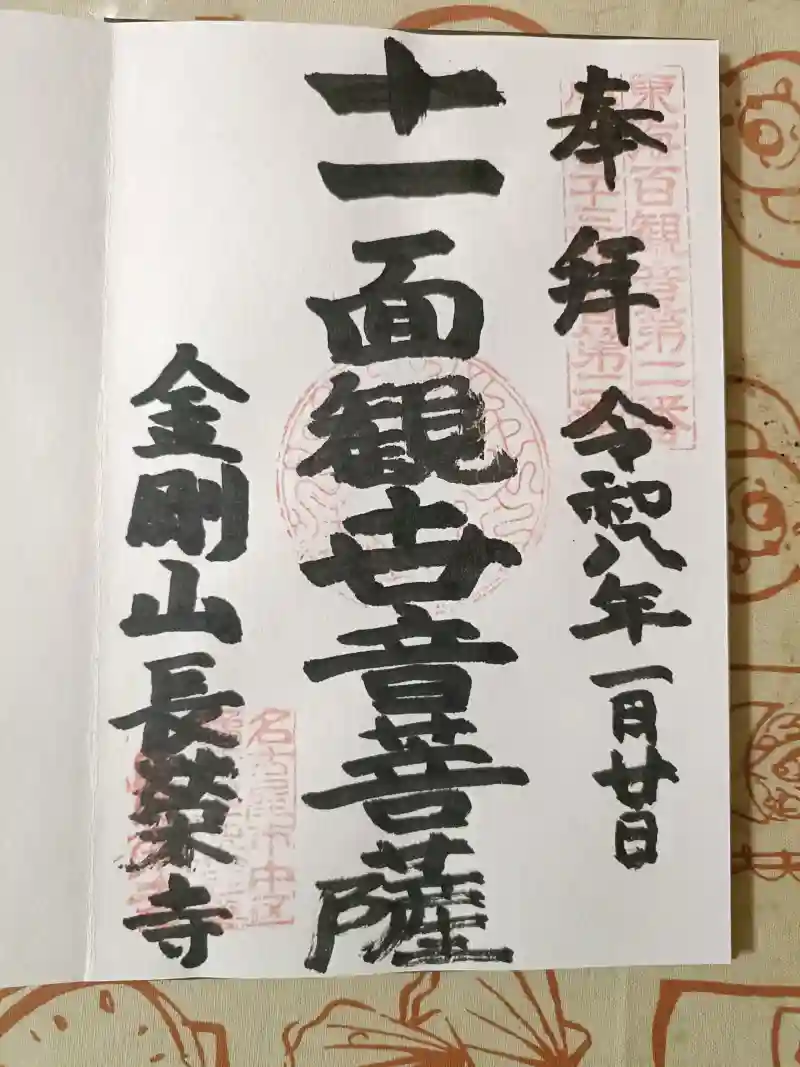 東海百観音第二番
奉拝 令和八年一月廿日
十一面観世音菩薩
名古屋市中区
金剛山長栄寺